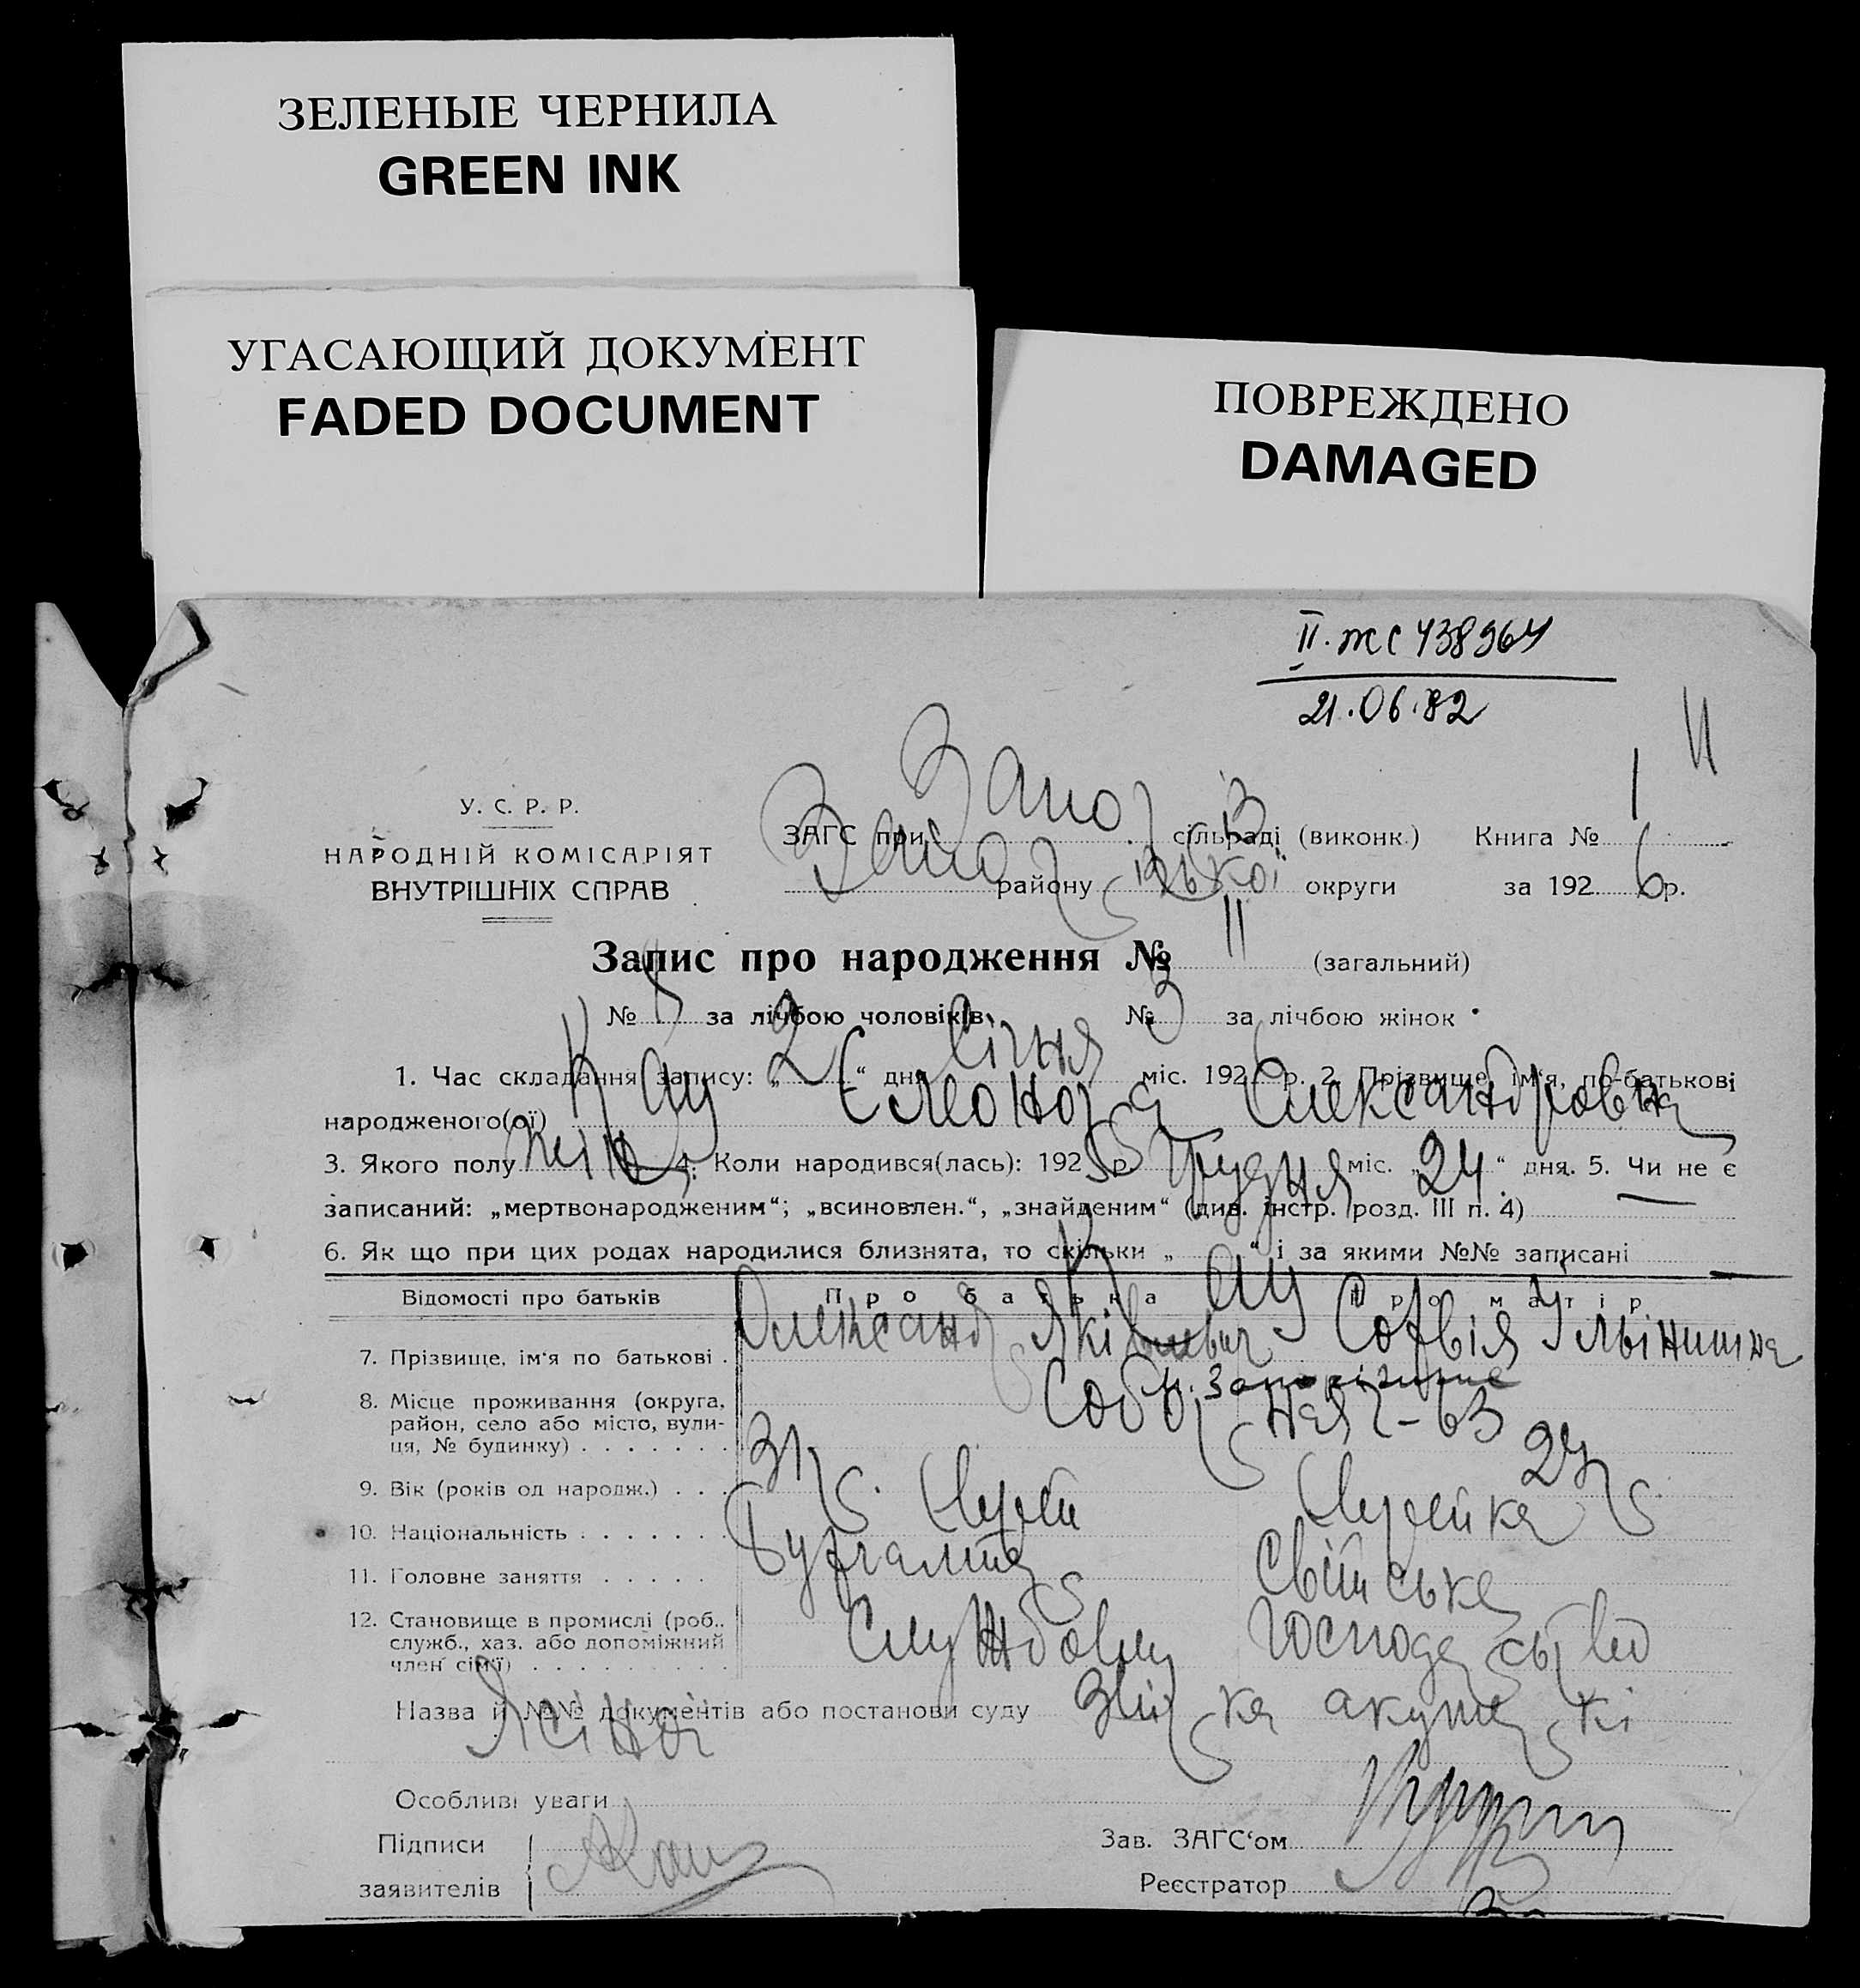 ЗЕЛЕНЫЕ ЧЕРНИЛА
GREEN INK
УГАСАЮЩИЙ ДОКУМЕНТ
FADED DOCUMENT
ПОВРЕЖДЕНО
DAMAGED
II. жс 438964
21.06.82
11
У. С. Р. Р.
НАРОДНІЙ КОМІСАРІЯТ
ВНУТРІШНІХ СПРАВ
ЗАГС при сільраді (виконк.) Книга № 1
району округи за 1926 р.
Запис про народження № 11 (загальний)
№ за лічбою чоловіків № 3 за лічбою жінок
1. Час складання запису: „2“ дня Січня міс. 1926 р. 2. Прізвище, ім‘я, по-батькові
народженого(ої) Кац Елеонора Олександровна
3. Якого полу жін. 4. Коли народився(лась): 1925 р. Грудня міс. „24“ дня. 5. Чи не є
записаний: „мертвонародженим“; „всиновлен.“, „знайденим“ (див. інстр. розд. III п. 4)
6. Як що при цих родах народилися близнята, то скільки „ “ і за якими №№ записані
Відомості про батьків Про батька Про матір
Кац
7. Прізвище, ім‘я по батькові . Олександр Які Софія Ільінишна
8. Місце проживання (округа, м. Запоріжжє
район, село або місто, вули- Соборная 2-63
ця, № будинку) . . . . . . .
9. Вік (років од народж.) . . . 31 р. 24 р.
10. Національність . . . . . . . Єврей Єврейка
11. Головне заняття . . . . . Бухгалтер Світське
12. Становище в промислі (роб., Службовец Господарство
служб., хаз. або допоміжний
член сім‘ї) . . . . . . . . .
Назва й №№ документів або постанови суду Звірка акушерки
Особливі уваги
Підписи
заявителів
Зав. ЗАГС‘ом
Реєстратор